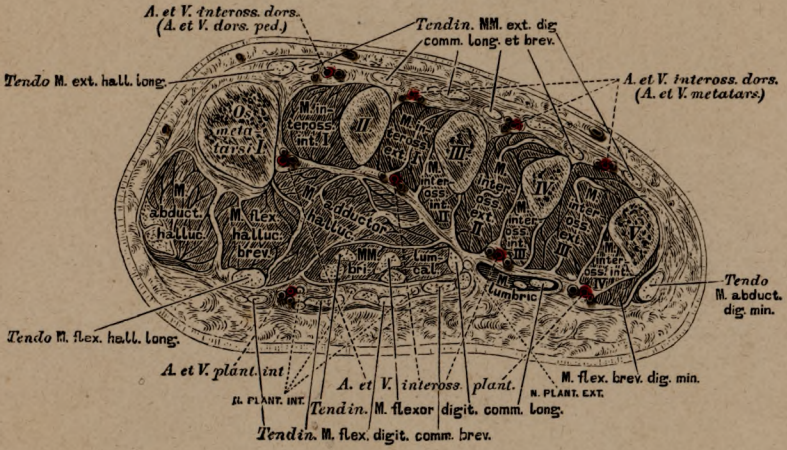 A. et V. inteross. dors.
(A. et V. dors. ped.)
Tendin. MM. ext. dig
comm. long. et brev.
Tendo M. ext. hall. long.
A. et V. inteross. dors.
(A. et V. metatars.)
Os
meta
tarsi I.
M. in-
teross.
int. I
II
M. in-
teross.
ext. I
III
M.
inter
oss.
int.
II
M.
inter
oss.
ext.
II
IV
M.
inter
oss.
int.
III
M.
inter
oss.
ext.
III
V
M.
inter
oss. int.
IV
M.
abduct.
halluc.
M.
flex.
halluc.
brev.
M.
adductor
halluc.
MM.
lum
bri-
cal.
M.
lumbric
Tendo
M. abduct.
dig. min.
Tendo M. flex. hall. long.
A. et V. plant. int
N. PLANT. INT.
A. et V. inteross. plant.
N. PLANT. EXT.
M. flex. brev. dig. min.
Tendin. M. flexor digit. comm. long.
Tendin. M. flex. digit. comm. brev.